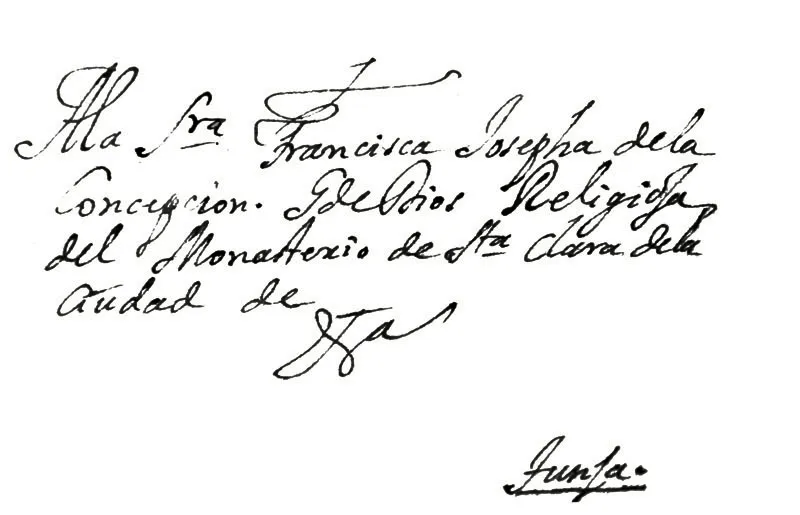 A la Sra Francisca Josepha de la
Concepcion. G de Dios Religiosa
del Monasterio de Sta Clara de la
Ciudad de
Tunja.